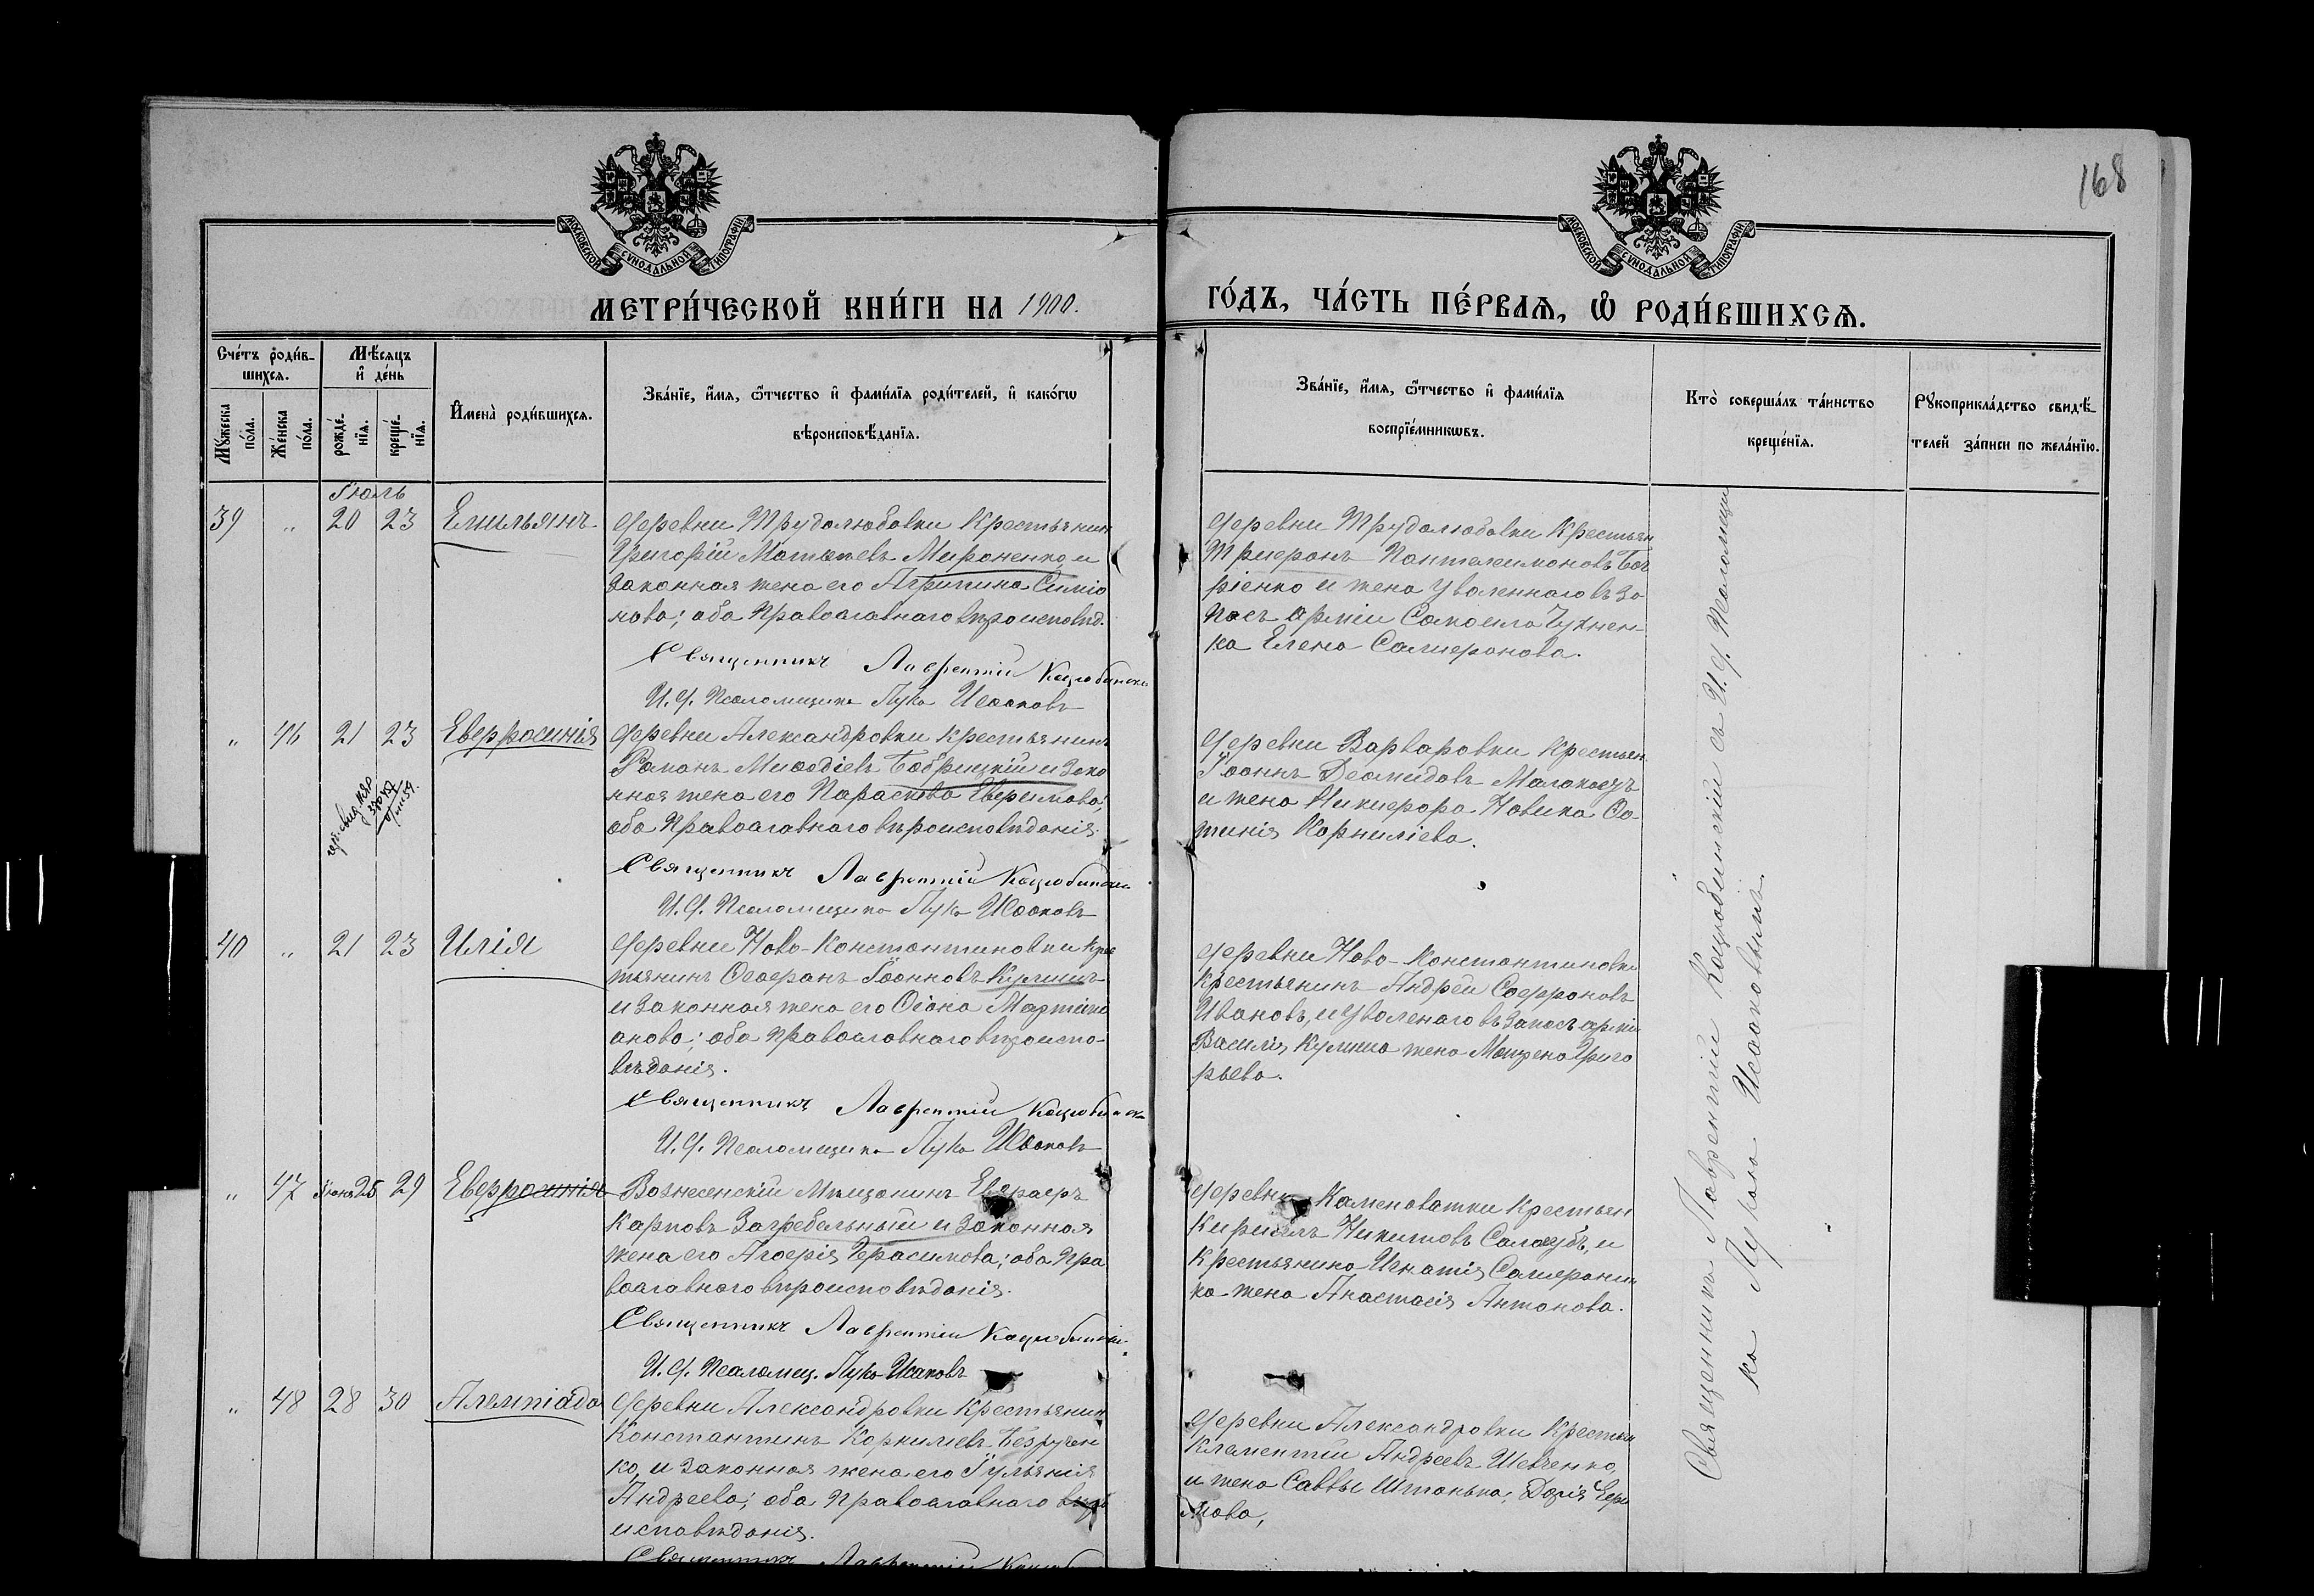 168
МОСКОВСКОЙ СУНОДАЛЬНОЙ ТИПОГРАФІИ
МОСКОВСКОЙ СУНОДАЛЬНОЙ ТИПОГРАФІИ
МЕТРИ́ЧЕСКОЙ КНИ́ГИ НА 1900.
ГО́ДЪ, ЧА́СТЬ ПЕ́РВАѦ, Ѽ РОДИ́ВШИХСѦ.
Сче́тъ роди́в-
шихсѧ.
Мѣ́сѧцъ
и҆ де́нь
Мꙋ́жеска
по́ла.
Же́нска
по́ла.
рожде́-
нїѧ.
креще́-
нїѧ.
И҆мена̀ роди́вшихсѧ.
Зва́нїе, и҆́мѧ, ѻ҆́тчество и҆ фами́лїѧ роди́телей, и҆ како́гѡ
вѣроисповѣ́данїѧ.
Зва́нїе, и҆́мѧ, ѻ҆́тчество и҆ фами́лїѧ
воспрїе́мникѡвъ.
Кто̀ соверша́лъ та́инство
креще́нїѧ.
Рꙋкоприкла́дство свидѣ́-
телей за́писи по жела́нїю.
Іюль
39 „ 20 23 Емильянъ
деревни Трудолюбовки Крестьянин
Григорій Мироненко и
законная жена его Агрипина Симіо
нова; оба Православнаго вѣроисповѣд.
Священникъ Лаврентій Коцюбинскі
И. д. Псаломщика Лука Исааковъ
деревни Трудолюбовки Крестьян
Трифонъ Пантелимоновъ
и жена Уволеннаго въ за
пасъ арміи Самоила Чухнен-
ка Елена Самфронова.
„ 46 21 23 Евфросинія
деревни Александровки крестьянинъ
Романъ Меѳодіевъ Бобрицкій и Зако
нная жена его Параскева Ефимова;
оба Православнаго вѣроисповѣданія.
Священникъ Лаврентій Коцюбинскі
И. д. Псаломщика Лука Исааковъ
деревни Варваровки Крестьян
Іоаннъ Демидовъ
и жена Никифора Новика Фо
тинія Корниліева.
40 „ 21 23 Илія
деревни Ново-Константиновки крес
тьянинъ Іоанновъ Кулишъ
и законная жена его Мартині
анова; оба православнаго вѣроиспо-
вѣданія.
Священникъ Лаврентій Коцюбинскі
И. д. Псаломщика Лука Исааковъ
деревни Ново-Константиновки
Крестьянинъ Андрей Софроновъ
Ивановъ, и Уволенаго въ Запасъ арміи
Василія Кулиша жена Матрена Григо
рьева.
„ 47 25 29 Евфросинія
Вознесенскій Мѣщанинъ
Карповъ Загребельный и Законная
жена его Герасимова; оба Пра
вославнаго вѣроисповѣданія.
Священникъ Лаврентій Коцюбинскі
И. д. Псаломщ. Лука Исааковъ
деревни Каменоватки Крестьян
Кирилъ Никитовъ и
Крестьянина Игнатія Самфронен
ка жена Анастасія Антонова.
„ 48 28 30 Алимпіада
деревни Александровки Крестьянин
Константинъ Корниліевъ Безручен
ко, и законная жена его Іульянія
Андреева; оба Православнаго вѣро
исповѣданія.
Священникъ Лаврентій
деревни Александровки Крестьян
Клементій Андреевъ Шевченко,
и жена Саввы Штанька,
Священникъ Лаврентій Коцюбинскій съ И. д. Псаломщи
ка Лукою Исааковымъ.